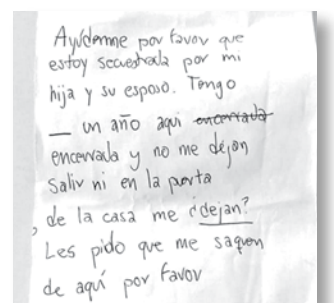 Ayúdenme por favor que
estoy secuestrada por mi
hija y su esposo. Tengo
_ un año aqui encerrada
encerrada y no me dejan
Salir ni en la puerta
, de la casa me ¿dejan?
Les pido que me saquen
de aquí por favor